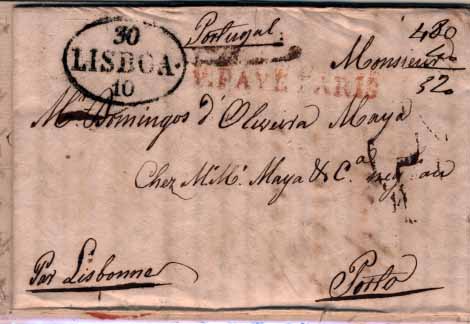 30
LISBOA
10
Portugal
480
P. PAYÉ PARIS
Monsieur
320
Mr. Domingos d'Oliveira Maya
Chez M.M. Maya & C.a
Par Lisbonne
Porto